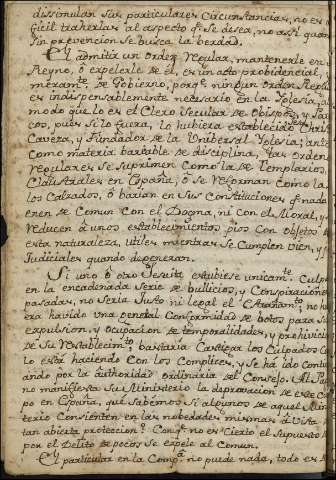 dissimulan sus particulares Circunstancias, no es di
ficil traherlas al aspecto q.e se desea, no assi quando
sin prevencion se busca la berdad.
El admitir un orden regular, mantenerle en el
Reyno, ó expelerle de él, es un acto probidencial,
meram.te de Gobierno, porq.e ningun orden Regular
es indispensablemente necesario en la Yglesia, al
modo que lo es el Clero Secular de Obispos, y Parro
cos, pues si lo fuera, lo hubiera establecido Christo
Caveza, y Fundador de la Unibersal Yglesia; antes
como materia bariable de disciplina, las ordenes
regulares se suprimen como la de Templarios
Claustrales en España, ó se reforman como la de
los Calzados, ó barian en sus constituciones q.e nada
tienen de comun con el Dogma, ni con el Moral, y se
reducen á unos establecimientos pios con objetos de
esta naturaleza, utiles mientras se cumplen bien, y per
judiciales quando degeneran.
Si uno ó otro Jesuita estubiese unicam.te culpado
en la encadenada serie de bullicios, y Conspiraciones
pasadas, no seria justo ni legal el Estrañam.to, no hu
biera havido una general conformidad de botos para su
expulsion, y ocupacion de temporalidades, y prohivicion
de su restablecim.to, bastaria Castigar los Culpados co
mo lo está haciendo con los Complices, y se há ido contin
uando por la authoridad ordinaria del Consejo. El Pa
pa no manifiesta Su Ministerio la depravacion de este cuer
po en España, que sabemos si algunos de aquel Minis
terio consienten en las nobedades mismas á Vista de
tan abierta proteccion? Con q.e no es cierto el Supuesto q.e
por el Delito de pocos se expele al Comun.
El particular en la Comp.a no puede nada, todo es del